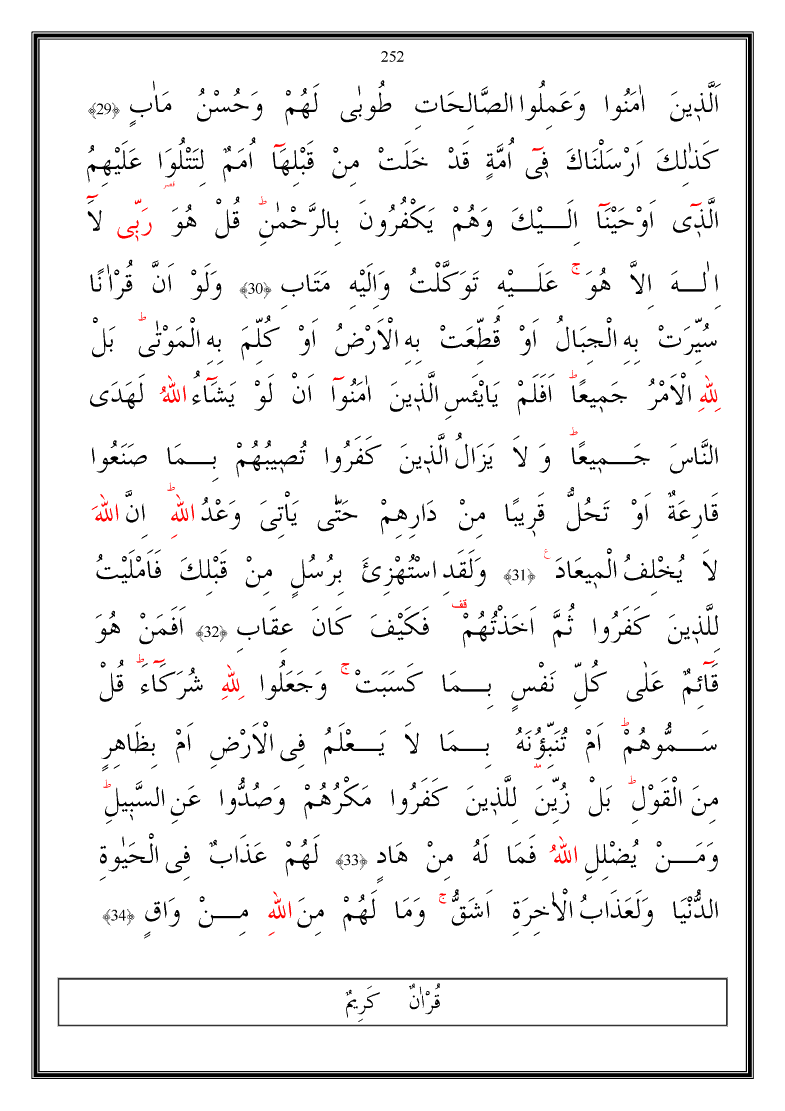 252
اَلَّذ۪ينَ اٰمَنُوا وَعَمِلُوا الصَّالِحَاتِ طُوبٰى لَهُمْ وَحُسْنُ مَاٰبٍ ﴿29﴾
كَذٰلِكَ اَرْسَلْنَاكَ ف۪ٓى اُمَّةٍ قَدْ خَلَتْ مِنْ قَبْلِهَٓا اُمَمٌ لِتَتْلُوَا عَلَيْهِمُ
الَّذ۪ٓى اَوْحَيْنَٓا اِلَـــيْكَ وَهُمْ يَكْفُرُونَ بِالرَّحْمٰنِۜ قُلْ هُوَ رَبّ۪ى لَٓا
اِلٰـــهَ اِلاَّ هُوَۚ عَلَـــيْهِ تَوَكَّلْتُ وَاِلَيْهِ مَتَابِ ﴿30﴾ وَلَوْ اَنَّ قُرْاٰنًا
سُيِّرَتْ بِهِ الْجِبَالُ اَوْ قُطِّعَتْ بِهِ الْاَرْضُ اَوْ كُلِّمَ بِهِ الْمَوْتٰىۜ بَلْ
لِلّٰهِ الْاَمْرُ جَم۪يعًاۜ اَفَلَمْ يَايْئَسِ الَّذ۪ينَ اٰمَنُٓوا اَنْ لَوْ يَشَٓاءُ اللّٰهُ لَهَدَى
النَّاسَ جَـــم۪يعًاۜ وَ لاَ يَزَالُ الَّذ۪ينَ كَفَرُوا تُص۪يبُهُمْ بِـــمَا صَنَعُوا
قَارِعَةٌ اَوْ تَحُلُّ قَر۪يبًا مِنْ دَارِهِمْ حَتّٰى يَاْتِىَ وَعْدُ اللّٰهِۜ اِنَّ اللّٰهَ
لاَ يُخْلِفُ الْم۪يعَادَ۟ ﴿31﴾ وَلَقَدِ اسْتُهْزِئَ بِرُسُلٍ مِنْ قَبْلِكَ فَاَمْلَيْتُ
لِلَّذ۪ينَ كَفَرُوا ثُمَّ اَخَذْتُهُمْ قف فَكَيْفَ كَانَ عِقَابِ ﴿32﴾ اَفَمَنْ هُوَ
قَٓائِمٌ عَلٰى كُلِّ نَفْسٍ بِـــمَا كَسَبَتْۚ وَجَعَلُوا لِلّٰهِ شُرَكَٓاءَۜ قُلْ
سَـــمُّوهُمْۜ اَمْ تُنَبِّؤُ۫نَهُ بِـــمَا لاَ يَـــعْلَمُ فِى الْاَرْضِ اَمْ بِظَاهِرٍ
مِنَ الْقَوْلِۜ بَلْ زُيِّنَ لِلَّذ۪ينَ كَفَرُوا مَكْرُهُمْ وَصُدُّوا عَنِ السَّب۪يلِۜ
وَمَـــنْ يُضْلِلِ اللّٰهُ فَمَا لَهُ مِنْ هَادٍ ﴿33﴾ لَهُمْ عَذَابٌ فِى الْحَيٰوةِ
الدُّنْيَا وَلَعَذَابُ الْاٰخِرَةِ اَشَقُّۚ وَمَا لَهُمْ مِنَ اللّٰهِ مِـــنْ وَاقٍ ﴿34﴾
قُرْاٰنٌ كَرِيمٌ